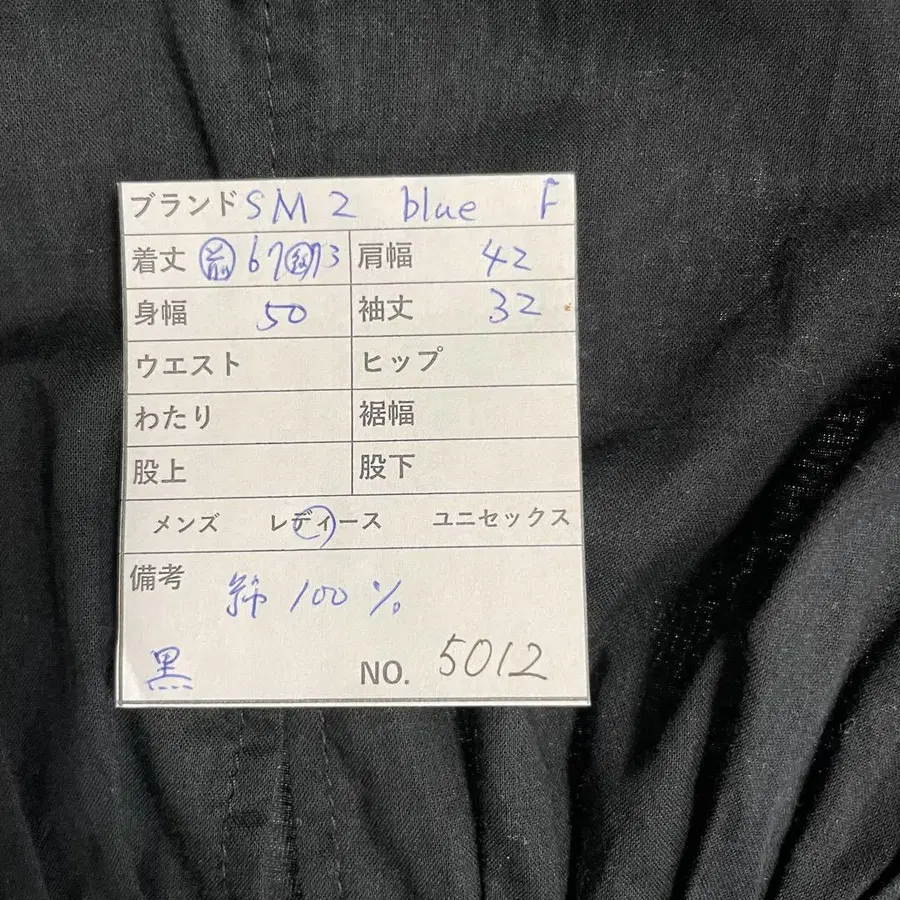 ブランド SM2 blue F
着丈 前 67 後 73 肩幅 42
身幅 50 袖丈 32
ウエスト ヒップ
わたり 裾幅
股上 股下
メンズ レディース ユニセックス
備考 綿 100%
黒 NO. 5012